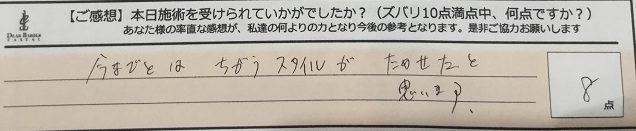 【ご感想】本日施術を受けられていかがでしたか？（ズバリ10点満点中、何点ですか？）
あなた様の率直な感想が、私達の何よりの力となり今後の参考となります。是非ご協力お願いします
DEAR BARBER
今までとは ちがう スタイルが ためせたと
思います。
8
点